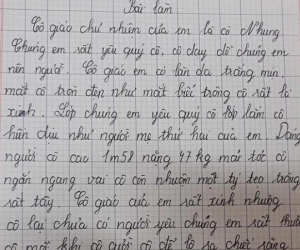 Bài làm
Cô giáo chủ nhiệm của em là cô Nhung
Chúng em rất yêu quý cô, cô dạy dỗ chúng em
nên người. Cô giáo em có làn da trắng mịn,
mắt cô tròn đẹp như mắt búp trông cô rất là
xinh. Lớp chúng em yêu quý cô lắm cô
hiền dịu như người mẹ thứ hai của em. Dáng
người cô cao 1m58 nặng 47 kg mái tóc cô
ngắn ngang vai cô còn nhuộm một tý teo trông
rất tây. Cô giáo của em rất xinh nhưng
cô lại chưa có người yêu chúng em rất
cô mỗi khi cô cười cô để lộ ra chiếc răng